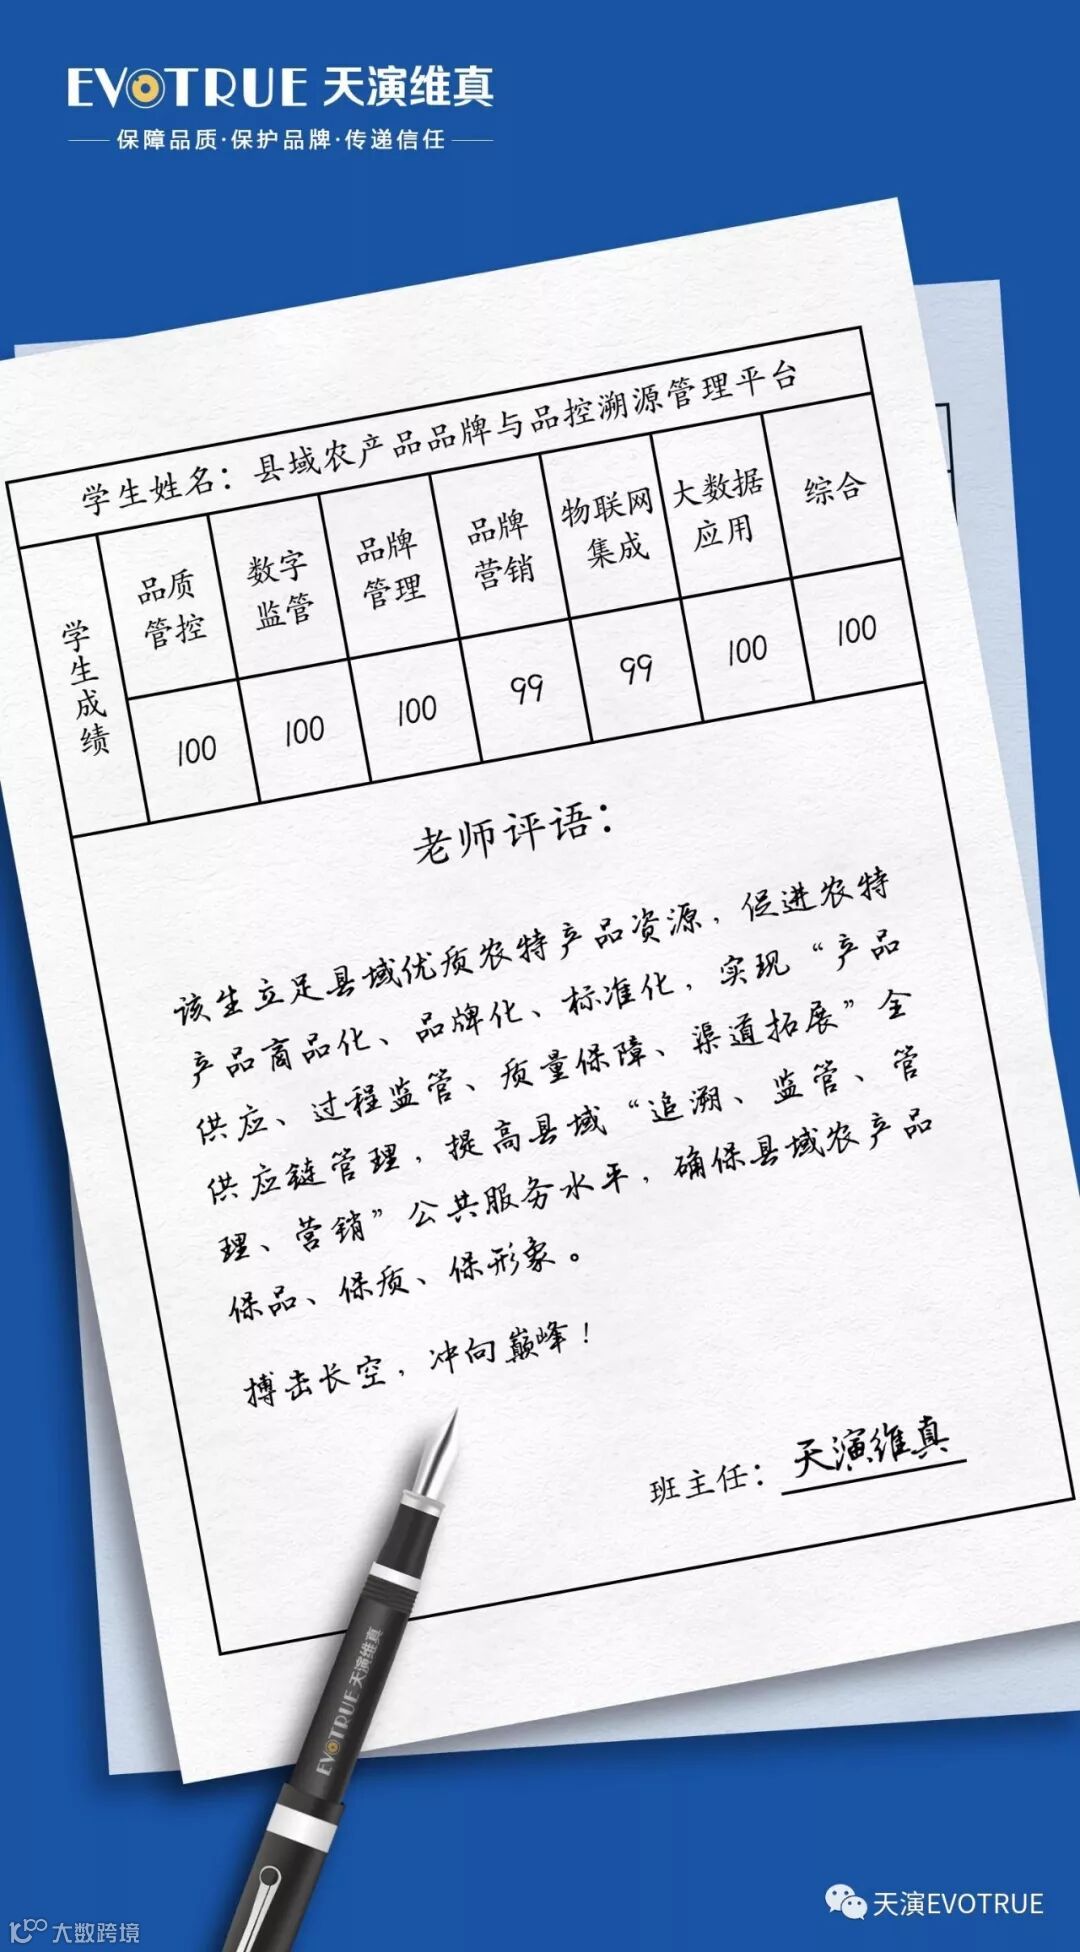 EVOTRUE 天演维真
保障品质·保护品牌·传递信任
学生姓名：县域农产品品牌与品控溯源管理平台
学生成绩
品质管控
数字监管
品牌管理
品牌营销
物联网集成
大数据应用
综合
100
100
100
99
99
100
100
老师评语：
该生立足县域优质农特产品资源，促进农特
产品商品化、品牌化、标准化，实现“产品
供应、过程监管、质量保障、渠道拓展”全
供应链管理，提高县域“追溯、监管、管
理、营销”公共服务水平，确保县域农产品
保品、保质、保形象。
搏击长空，冲向巅峰！
班主任：天演维真
EVOTRUE 天演维真
天演EVOTRUE
大数跨境